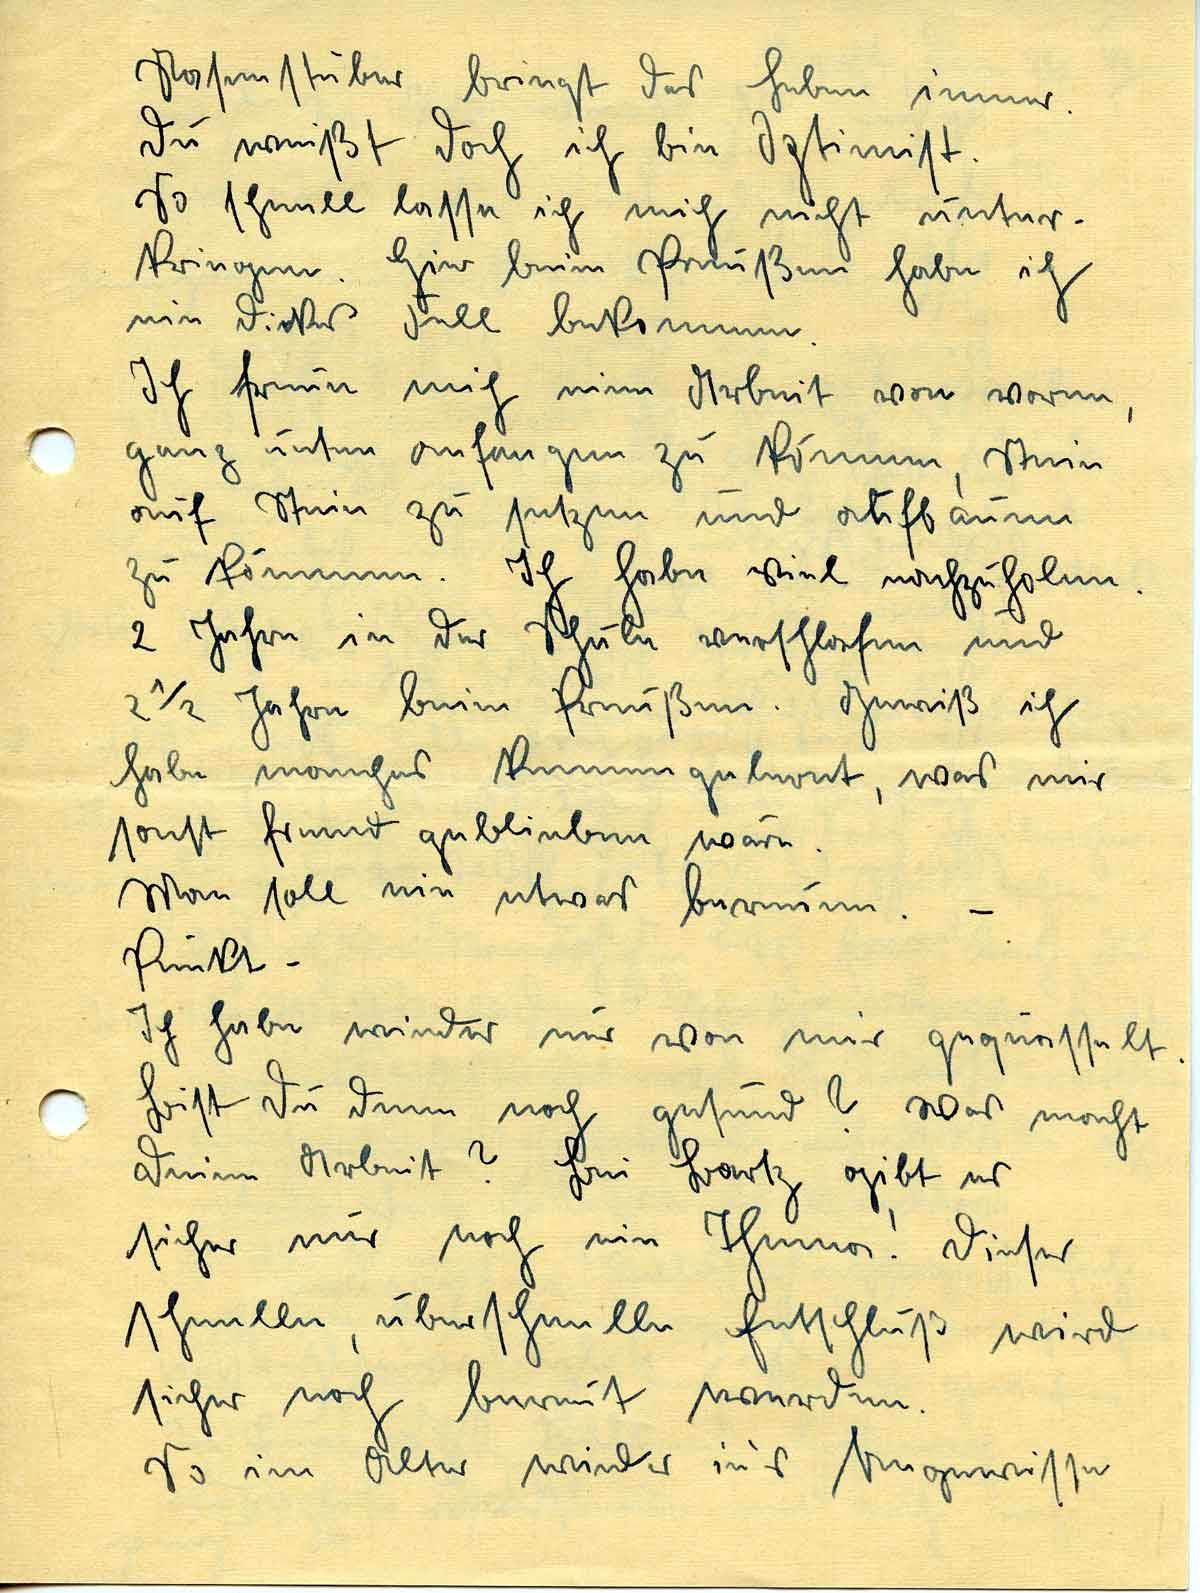 Nasenstüber bringt das Leben immer.
Du weißt doch ich bin Optimist.
So schnell lasse ich mich nicht unter-
kriegen. Hier beim Preußen habe ich
ein dickes Fell bekommen.
Ich freue mich eine Arbeit von vorne,
ganz unten anfangen zu können, Stein
auf Stein zu setzen und aufbauen
zu können. Ich habe viel nachzuholen.
2 Jahre in der Schule verschlafen und
2 1/2 Jahre beim Preußen. Gewiß ich
habe manches kennengelernt, was mir
sonst fremd geblieben wäre.
Man soll nie etwas bereuen. –
Punkt –
Ich habe wieder nur von mir gequasselt.
Bist Du denn noch gesund? Was macht
Deine Arbeit? Bei Bartz gibt es
sicher nur noch ein Thema! Dieser
schnelle, überschnelle Entschluß wird
sicher noch bereut werden.
So im Alter wieder in's Ungewisse